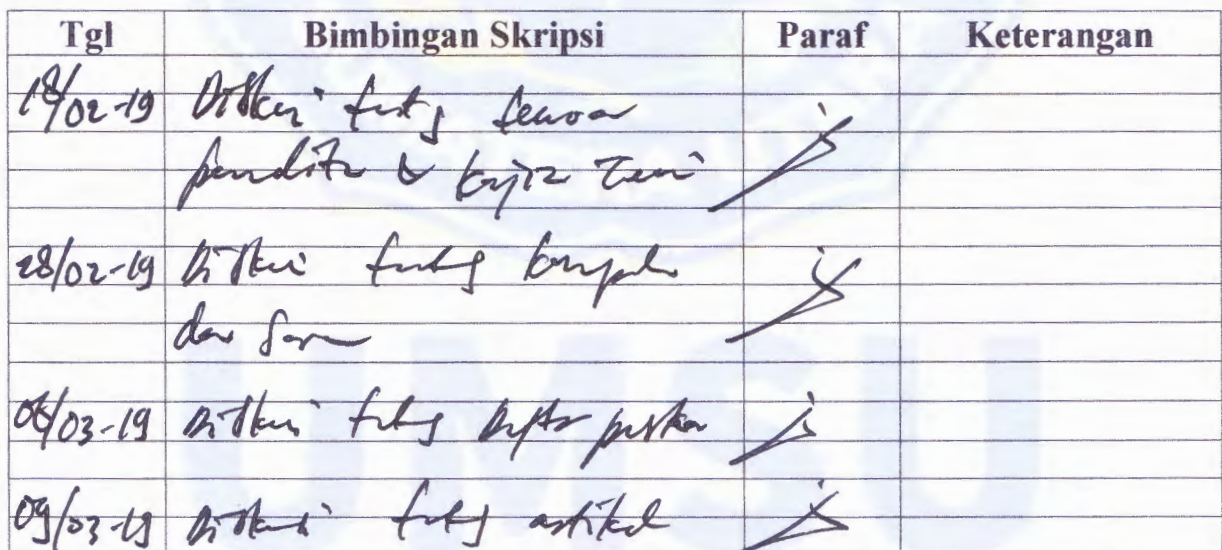 Tgl Bimbingan Skripsi Paraf Keterangan
18/02-19 Diskusi tentang
& kajian teori
28/02-19 Diskusi tentang kesimpulan
dan saran
06/03-19 Diskusi tentang daftar pustaka
09/03-19 Diskusi tentang artikel
UMSU